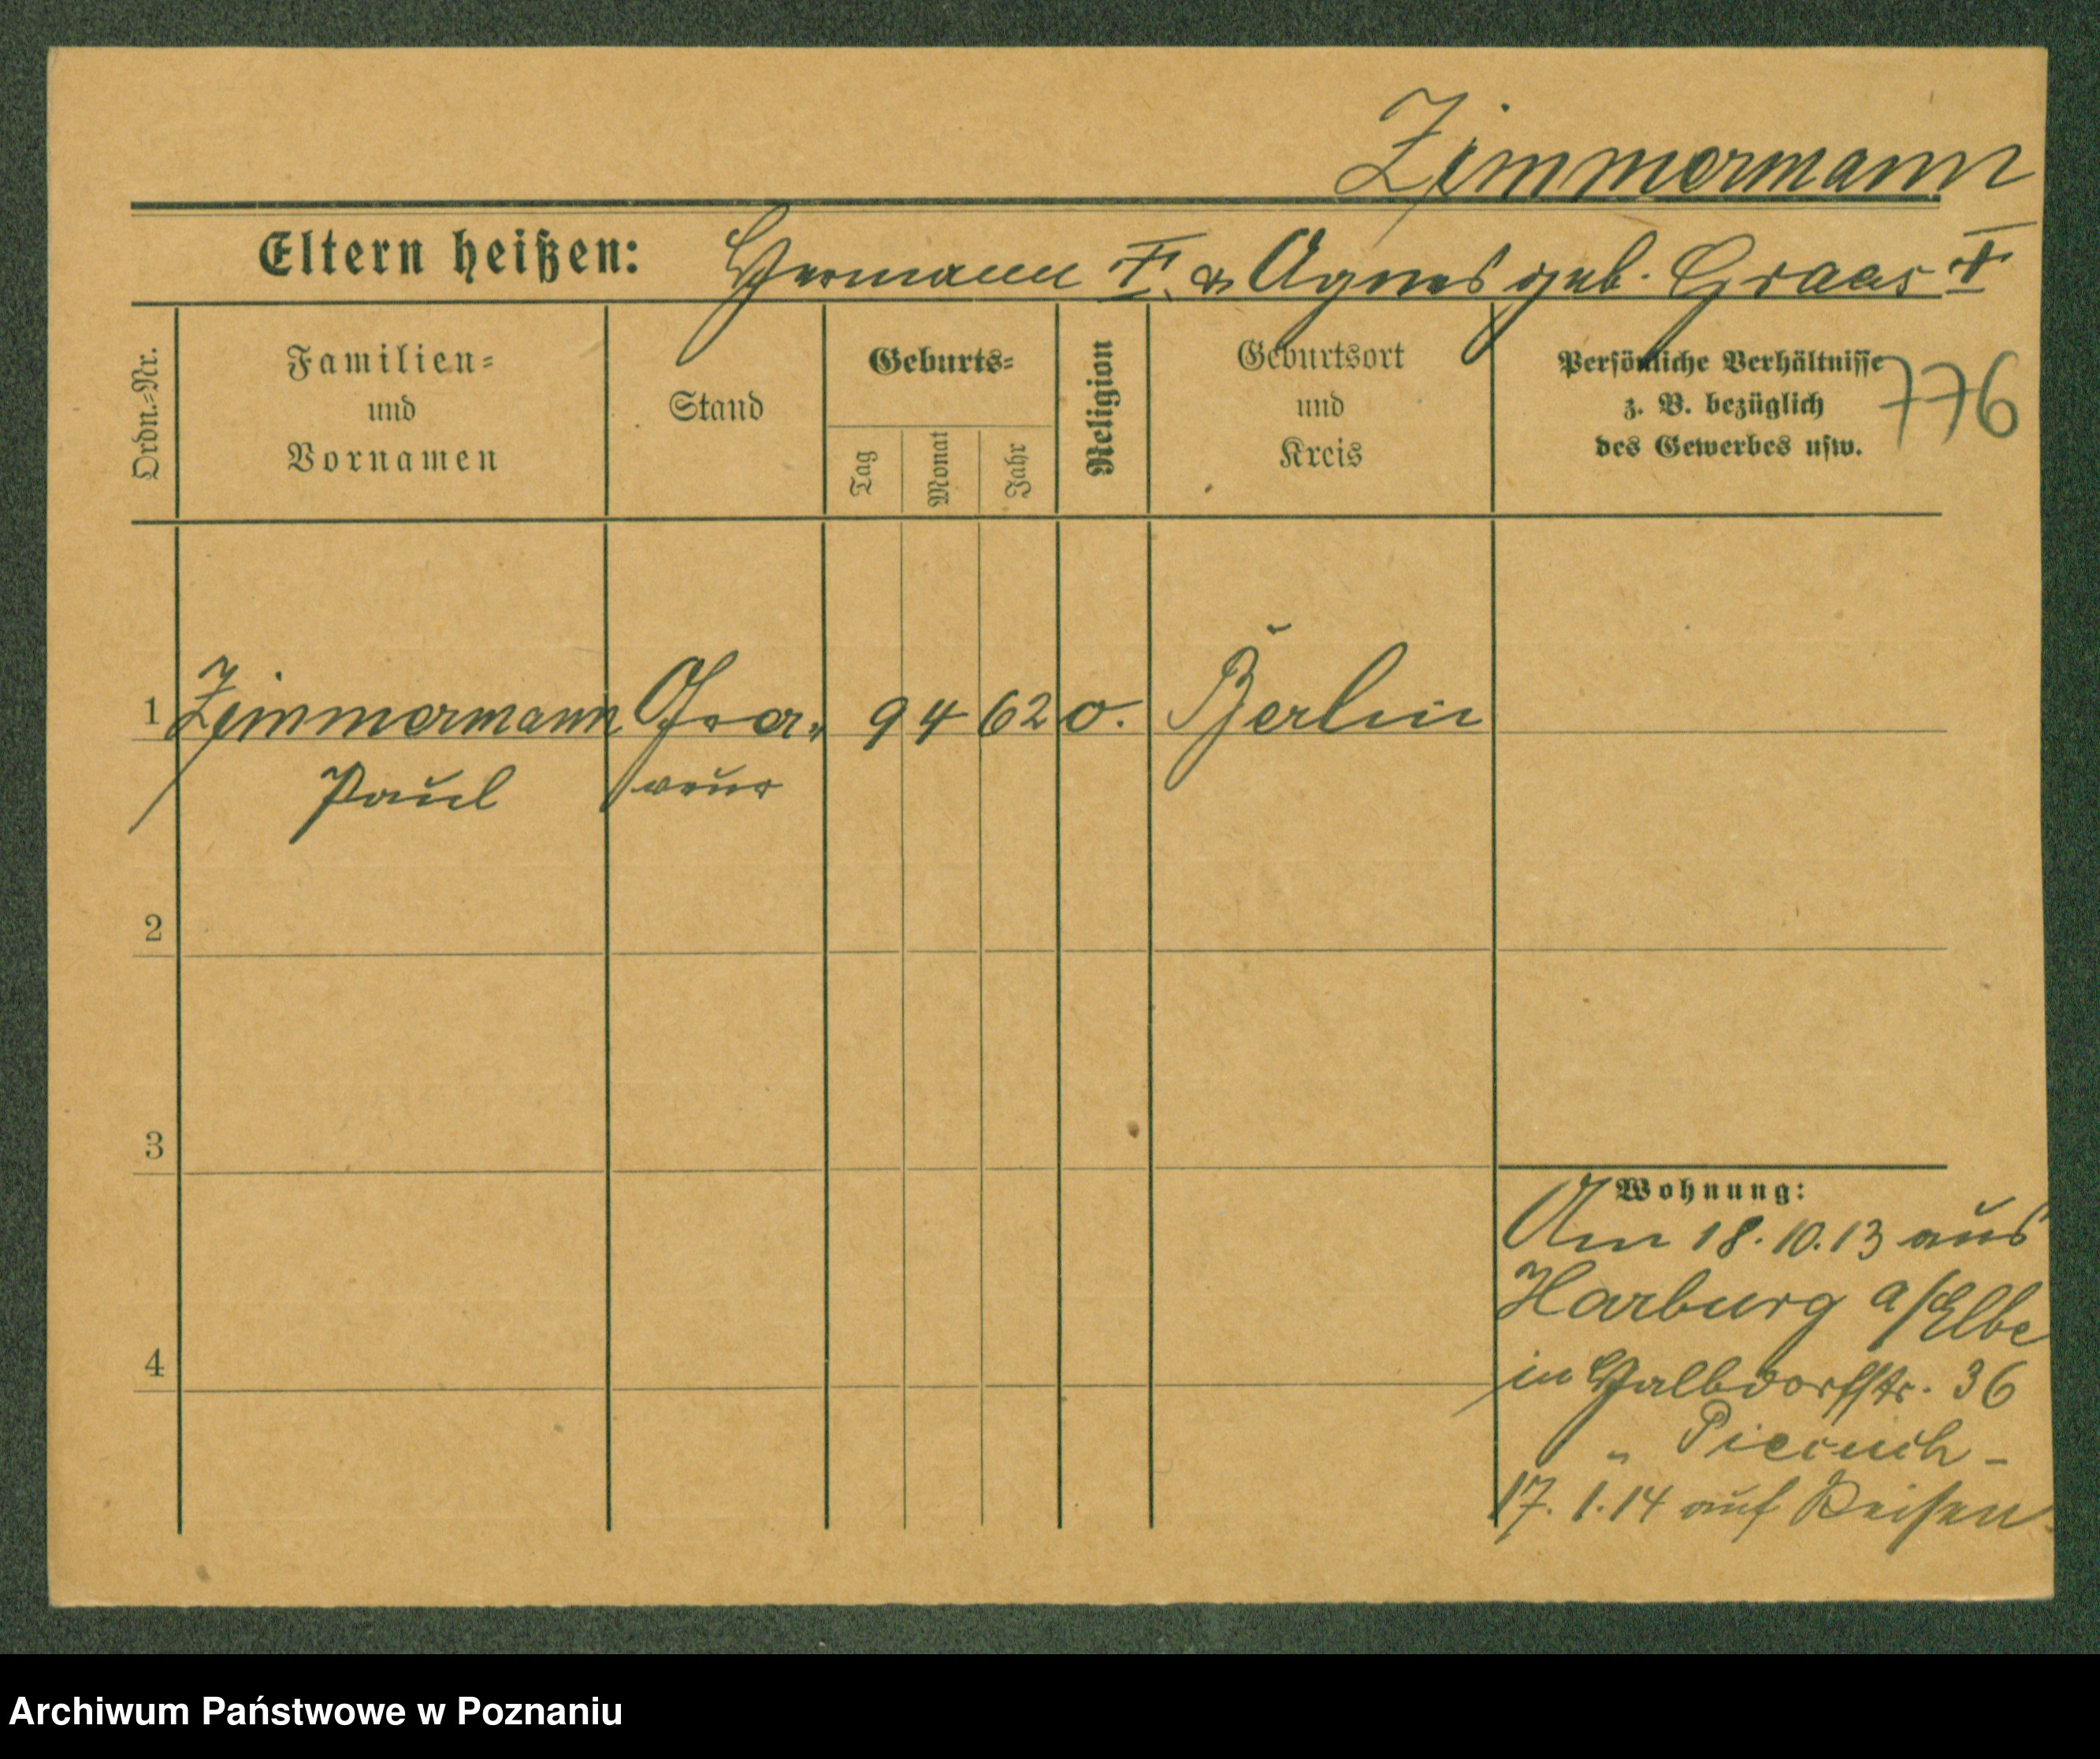 Zimmermann
Eltern heißen: Hermann † & Agnes geb. Graas †
Ordn.-Nr.
Familien-
und
Vornamen
Stand
Geburts-
Tag
Monat
Jahr
Religion
Geburtsort
und
Kreis
Persönliche Verhältnisse
z. B. bezüglich
des Gewerbes usw.
776
1 Zimmermann Gra- 9 4 62 o. Berlin
Paul veur
2
3
4
Wohnung:
Am 18.10.13 aus
Harburg a/Elbe
in Halbdorfstr. 36
"
17.1.14 auf Reisen
Archiwum Państwowe w Poznaniu